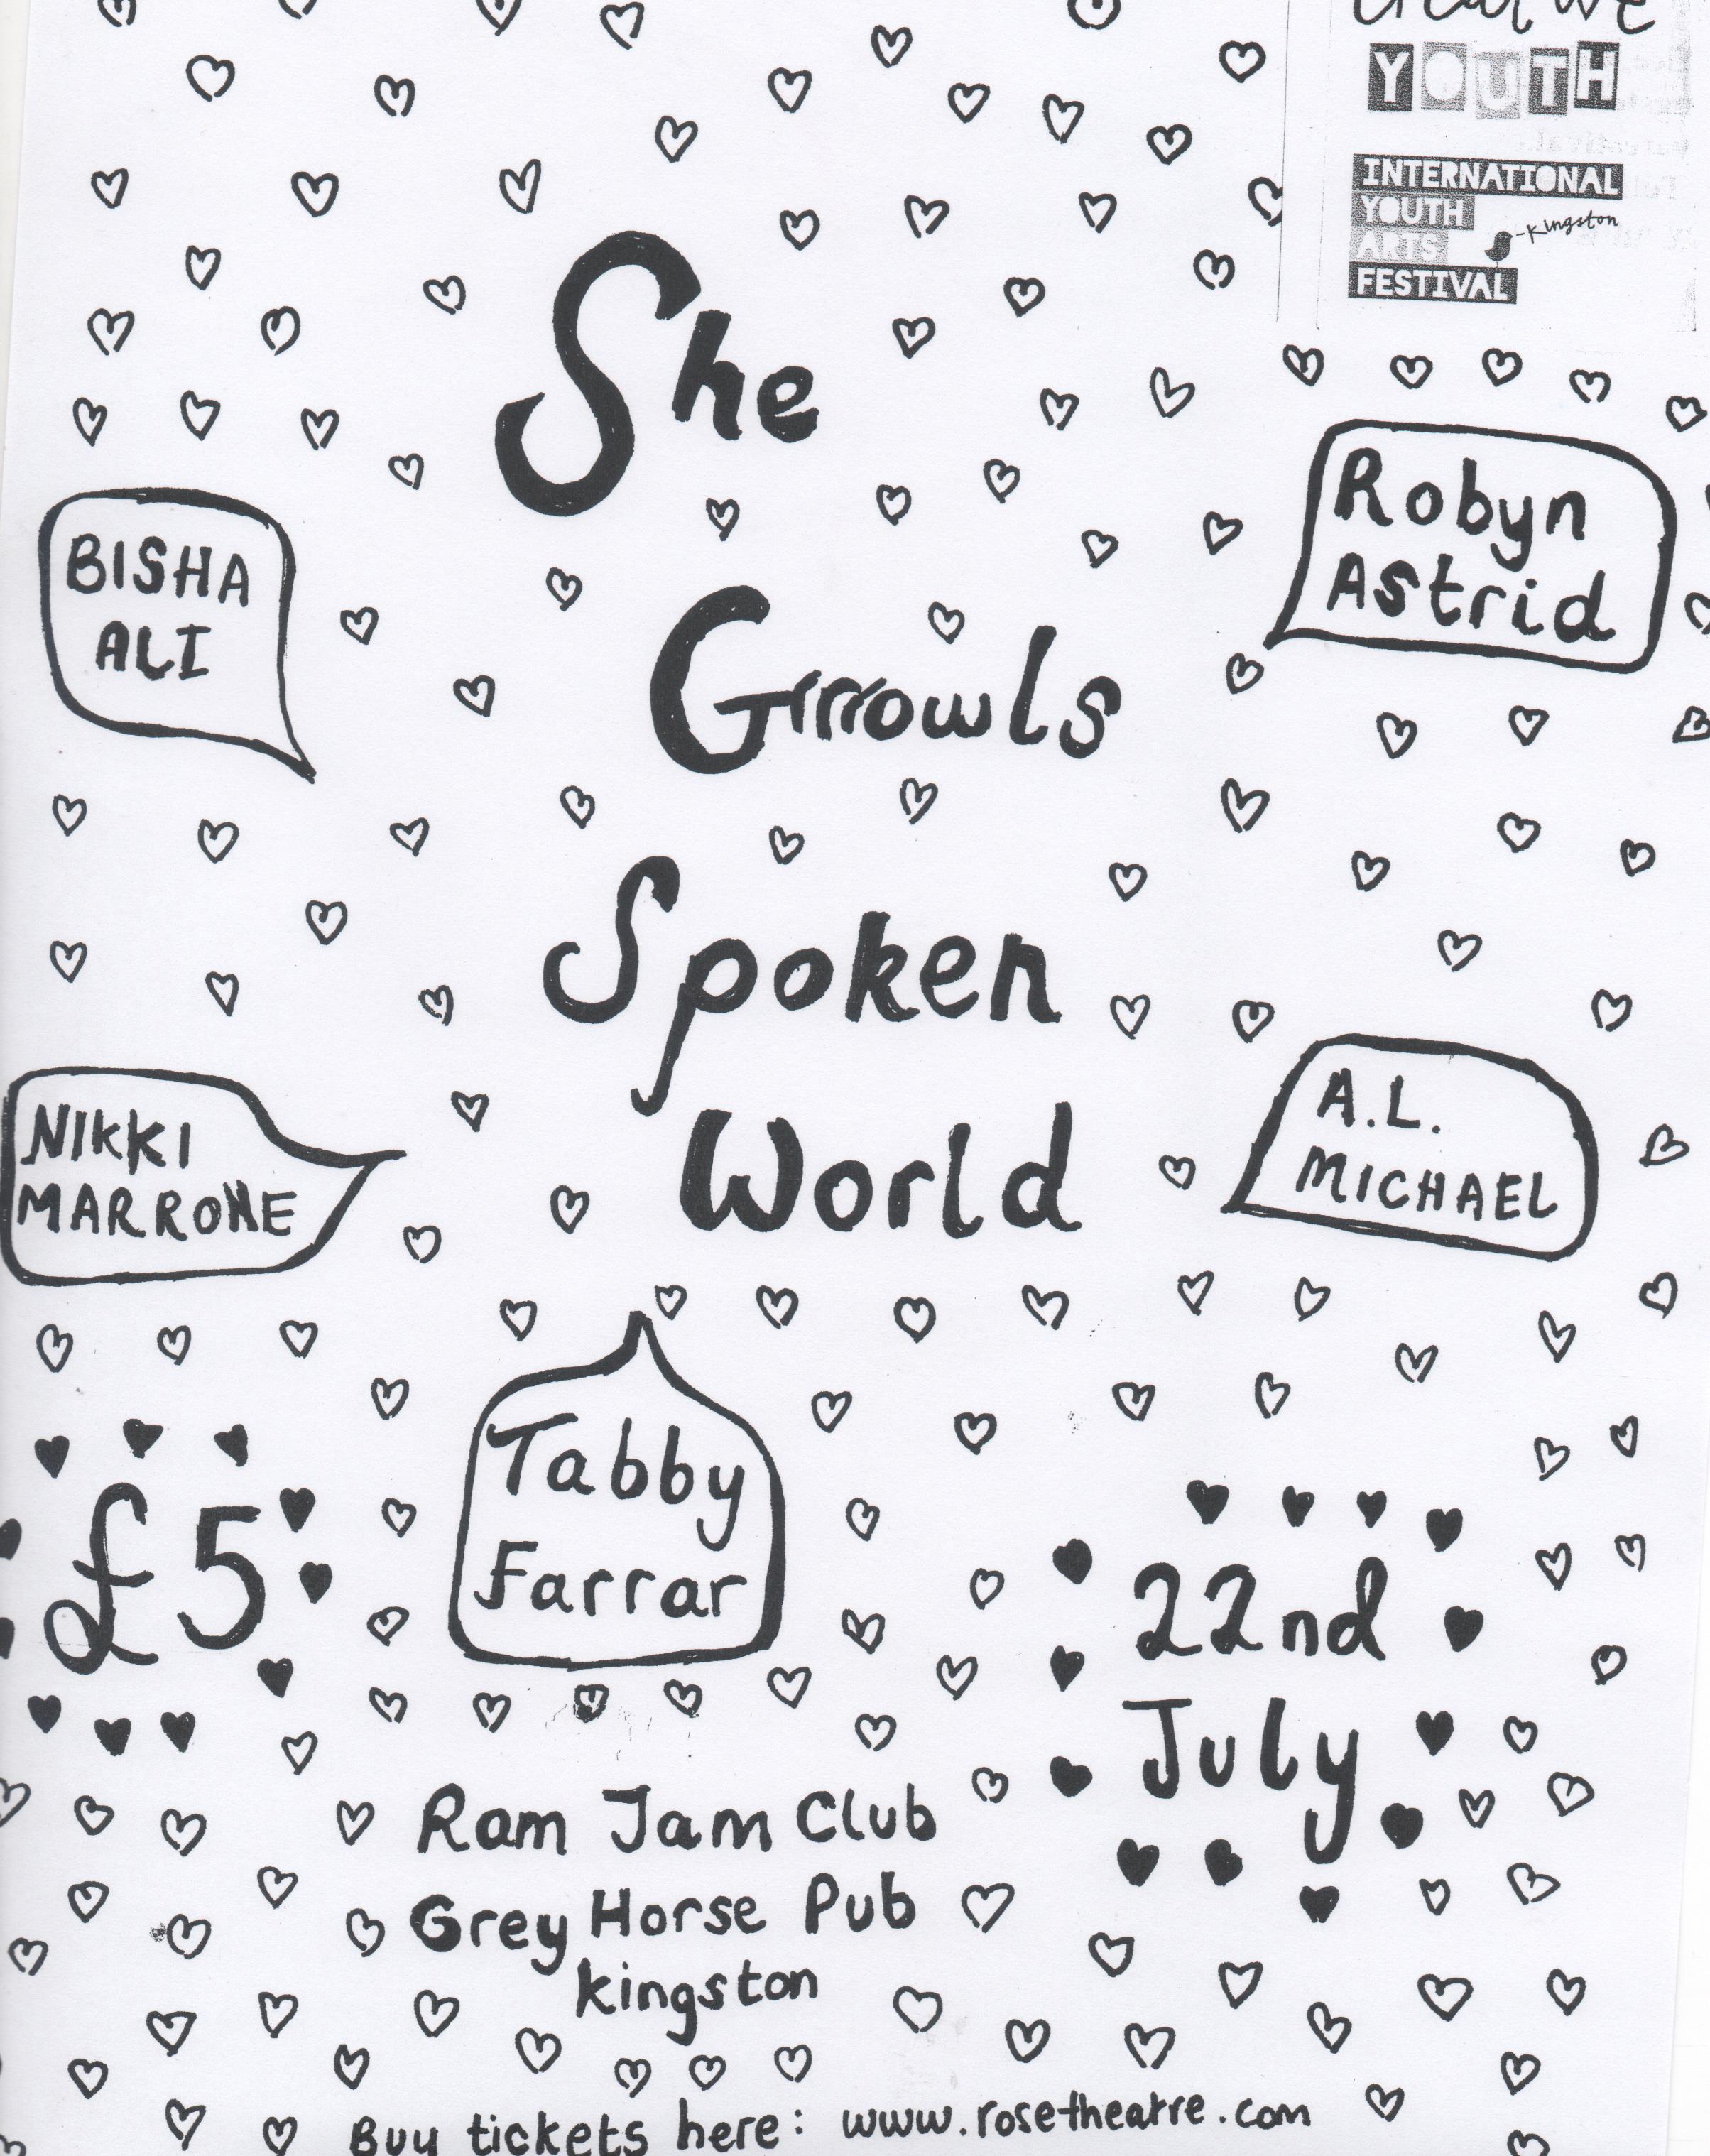 Creative
YOUTH
INTERNATIONAL
YOUTH
ARTS
FESTIVAL
-Kingston
She
Grrrowls
Spoken
World
BISHA
ALI
Robyn
Astrid
NIKKI
MARRONE
A.L.
MICHAEL
Tabby
Farrar
£5
22nd
July
Ram Jam Club
Grey Horse Pub
Kingston
Buy tickets here: www.rosetheatre.com